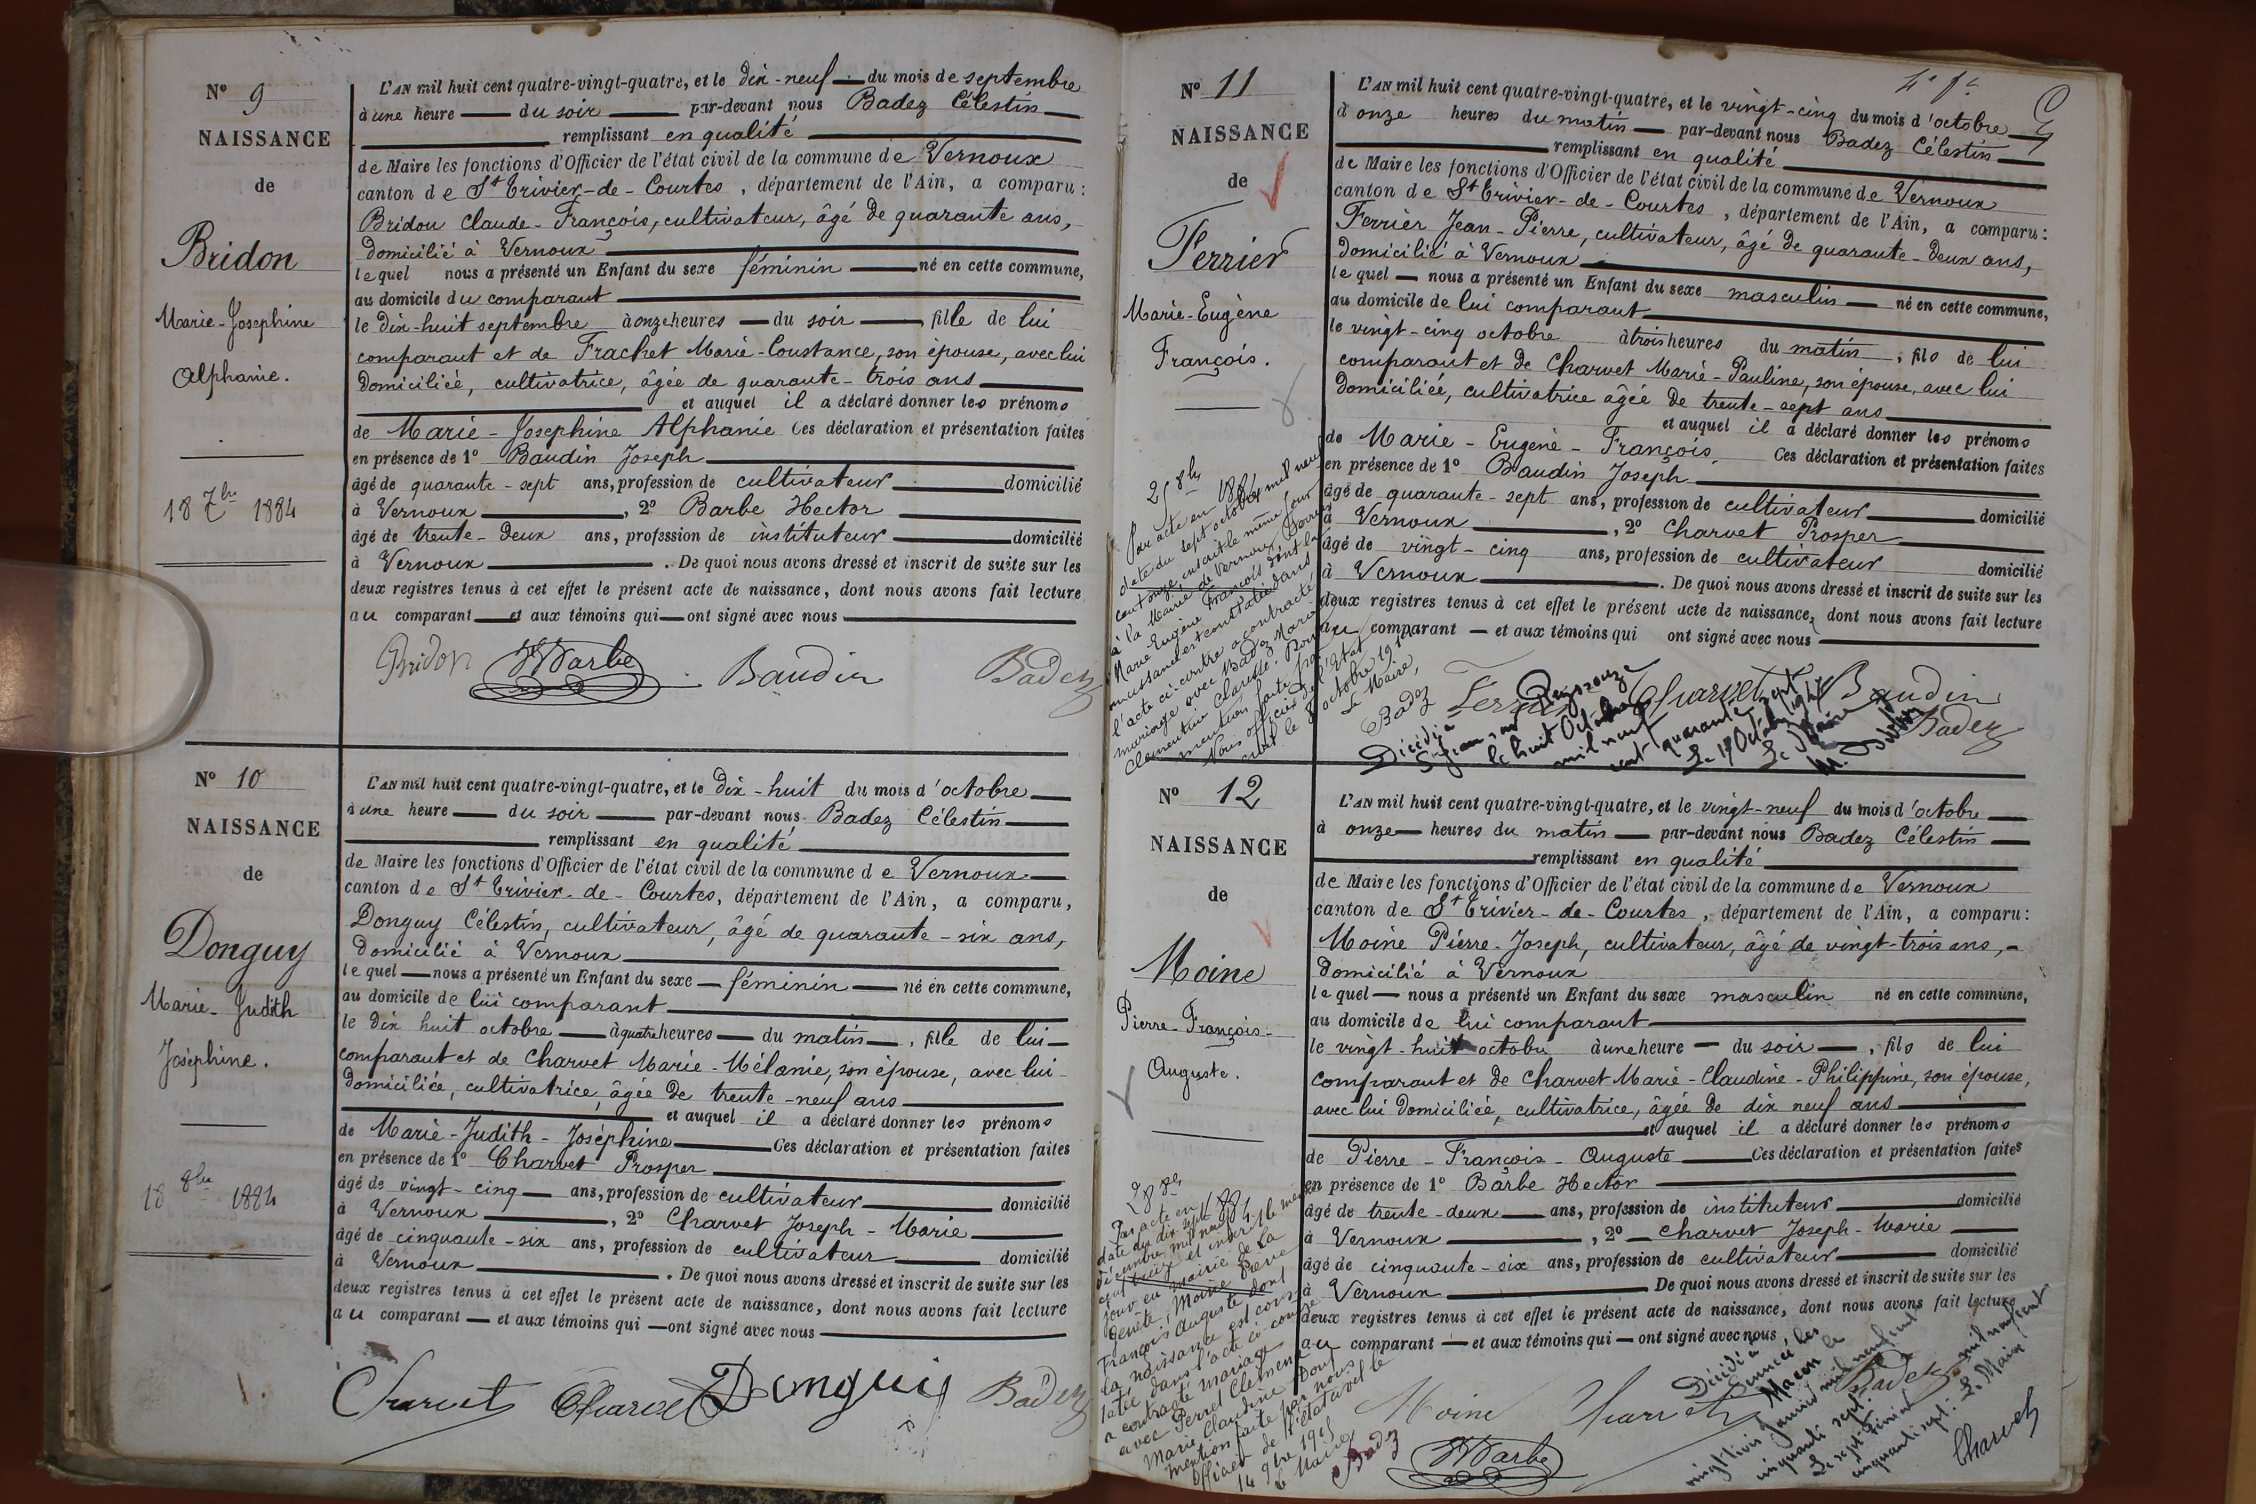 N° 9
NAISSANCE
de
Bridon
Marie-Josephine
Alphanie.
18 7bre 1884
L'AN mil huit cent quatre-vingt-quatre, et le dix-neuf du mois de septembre
à une heure du soir par-devant nous Badez Célestin
remplissant en qualité
de Maire les fonctions d'Officier de l'état civil de la commune de Vernoux
canton de St Trivier-de-Courtes, département de l'Ain, a comparu :
Bridon Claude-François, cultivateur, âgé de quarante ans,
domicilié à Vernoux
lequel nous a présenté un Enfant du sexe féminin né en cette commune,
au domicile du comparant
le dix-huit septembre à onze heures du soir, fille de lui
comparant et de Frachet Marie-Constance, son épouse, avec lui
domiciliée, cultivatrice, âgée de quarante-trois ans
et auquel il a déclaré donner les prénoms
de Marie-Josephine Alphanie Ces déclaration et présentation faites
en présence de 1° Baudin Joseph
âgé de quarante-sept ans, profession de cultivateur domicilié
à Vernoux, 2° Barbe Hector
âgé de trente-deux ans, profession de instituteur domicilié
à Vernoux. De quoi nous avons dressé et inscrit de suite sur les
deux registres tenus à cet effet le présent acte de naissance, dont nous avons fait lecture
au comparant et aux témoins qui ont signé avec nous
Bridon HBarbe Baudin Badez
N° 10
NAISSANCE
de
Donguy
Marie-Judith
Joséphine.
18 8bre 1884
L'AN mil huit cent quatre-vingt-quatre, et le dix-huit du mois d'octobre
à une heure du soir par-devant nous Badez Célestin
remplissant en qualité
de Maire les fonctions d'Officier de l'état civil de la commune de Vernoux
canton de St Trivier-de-Courtes, département de l'Ain, a comparu,
Donguy Célestin, cultivateur, âgé de quarante-six ans,
domicilié à Vernoux
lequel nous a présenté un Enfant du sexe féminin né en cette commune,
au domicile de lui comparant
le dix huit octobre à quatre heures du matin, fille de lui
comparant et de Charvet Marie-Mélanie, son épouse, avec lui
domiciliée, cultivatrice, âgée de trente-neuf ans
et auquel il a déclaré donner les prénoms
de Marie-Judith-Joséphine Ces déclaration et présentation faites
en présence de 1° Charvet Prosper
âgé de vingt-cinq ans, profession de cultivateur domicilié
à Vernoux, 2° Charvet Joseph-Marie
âgé de cinquante-six ans, profession de cultivateur domicilié
à Vernoux. De quoi nous avons dressé et inscrit de suite sur les
deux registres tenus à cet effet le présent acte de naissance, dont nous avons fait lecture
au comparant et aux témoins qui ont signé avec nous
Charvet Charvet Donguy Badez
N° 11
NAISSANCE
de
Ferrier
Marie-Eugène
François.
25 8bre 1884
Par acte en
date du sept octobre mil neuf
cent onze, inscrit le même jour
à la Mairie de Vernoux, Ferrier
Marie Eugène François dont la
naissance est constatée dans
l'acte ci-contre a contracté
mariage avec Badez Marie
Clementine Clarisse. Pour
mention faite par
Nous officier de l'Etat
civil le 8 octobre 1911
Le Maire,
Badez
L'AN mil huit cent quatre-vingt-quatre, et le vingt-cinq du mois d'octobre
à onze heures du matin par-devant nous Badez Célestin
remplissant en qualité
de Maire les fonctions d'Officier de l'état civil de la commune de Vernoux
canton de St Trivier-de-Courtes, département de l'Ain, a comparu :
Ferrier Jean-Pierre, cultivateur, âgé de quarante-deux ans,
domicilié à Vernoux
lequel nous a présenté un Enfant du sexe masculin né en cette commune,
au domicile de lui comparant
le vingt-cinq octobre à trois heures du matin, fils de lui
comparant et de Charvet Marie-Pauline, son épouse, avec lui
domiciliée, cultivatrice âgée de trente-sept ans
et auquel il a déclaré donner les prénoms
de Marie-Eugène-François. Ces déclaration et présentation faites
en présence de 1° Baudin Joseph
âgé de quarante-sept ans, profession de cultivateur domicilié
à Vernoux, 2° Charvet Prosper
âgé de vingt-cinq ans, profession de cultivateur domicilié
à Vernoux. De quoi nous avons dressé et inscrit de suite sur les
deux registres tenus à cet effet le présent acte de naissance, dont nous avons fait lecture
au comparant et aux témoins qui ont signé avec nous
Ferrier Charvet Baudin
Badez
Décédé à
St Jean sur Reyssouze
le huit Octobre
mil neuf
cent quarante sept
Le Octobre 1947
Le Maire
N° 12
NAISSANCE
de
Moine
Pierre-François-
Auguste.
28 8bre 1884
Par acte en
date du dix sept
décembre mil neuf
cent et inscrit le même
jour en mairie de La
Genête, Moine Pierre
François Auguste dont
la naissance est cons-
tatée dans l'acte ci-contre
a contracté mariage
avec Perret Clémence
Marie Claudine Dont
mention faite par nous
officier de l'état civil le
14 1915
Le Maire
Badez
L'AN mil huit cent quatre-vingt-quatre, et le vingt-neuf du mois d'octobre
à onze heures du matin par-devant nous Badez Célestin
remplissant en qualité
de Maire les fonctions d'Officier de l'état civil de la commune de Vernoux
canton de St Trivier-de-Courtes, département de l'Ain, a comparu :
Moine Pierre-Joseph, cultivateur, âgé de vingt-trois ans,
domicilié à Vernoux
lequel nous a présenté un Enfant du sexe masculin né en cette commune,
au domicile de lui comparant
le vingt-huit octobre à une heure du soir, fils de lui
comparant et de Charvet Marie-Claudine-Philippine, son épouse,
avec lui domiciliée, cultivatrice, âgée de dix neuf ans
et auquel il a déclaré donner les prénoms
de Pierre-François-Auguste Ces déclaration et présentation faites
en présence de 1° Barbe Hector
âgé de trente-deux ans, profession de instituteur domicilié
à Vernoux, 2° Charvet Joseph-Marie
âgé de cinquante-six ans, profession de cultivateur domicilié
à Vernoux De quoi nous avons dressé et inscrit de suite sur les
deux registres tenus à cet effet le présent acte de naissance, dont nous avons fait lecture
au comparant et aux témoins qui ont signé avec nous
Moine Charvet Badez
HBarbe
Décédé à
Sancé les
Macon le
vingt trois janvier mil neuf cent
cinquante sept.
Le sept Février mil neuf cent
cinquante sept. Le Maire
Charvet